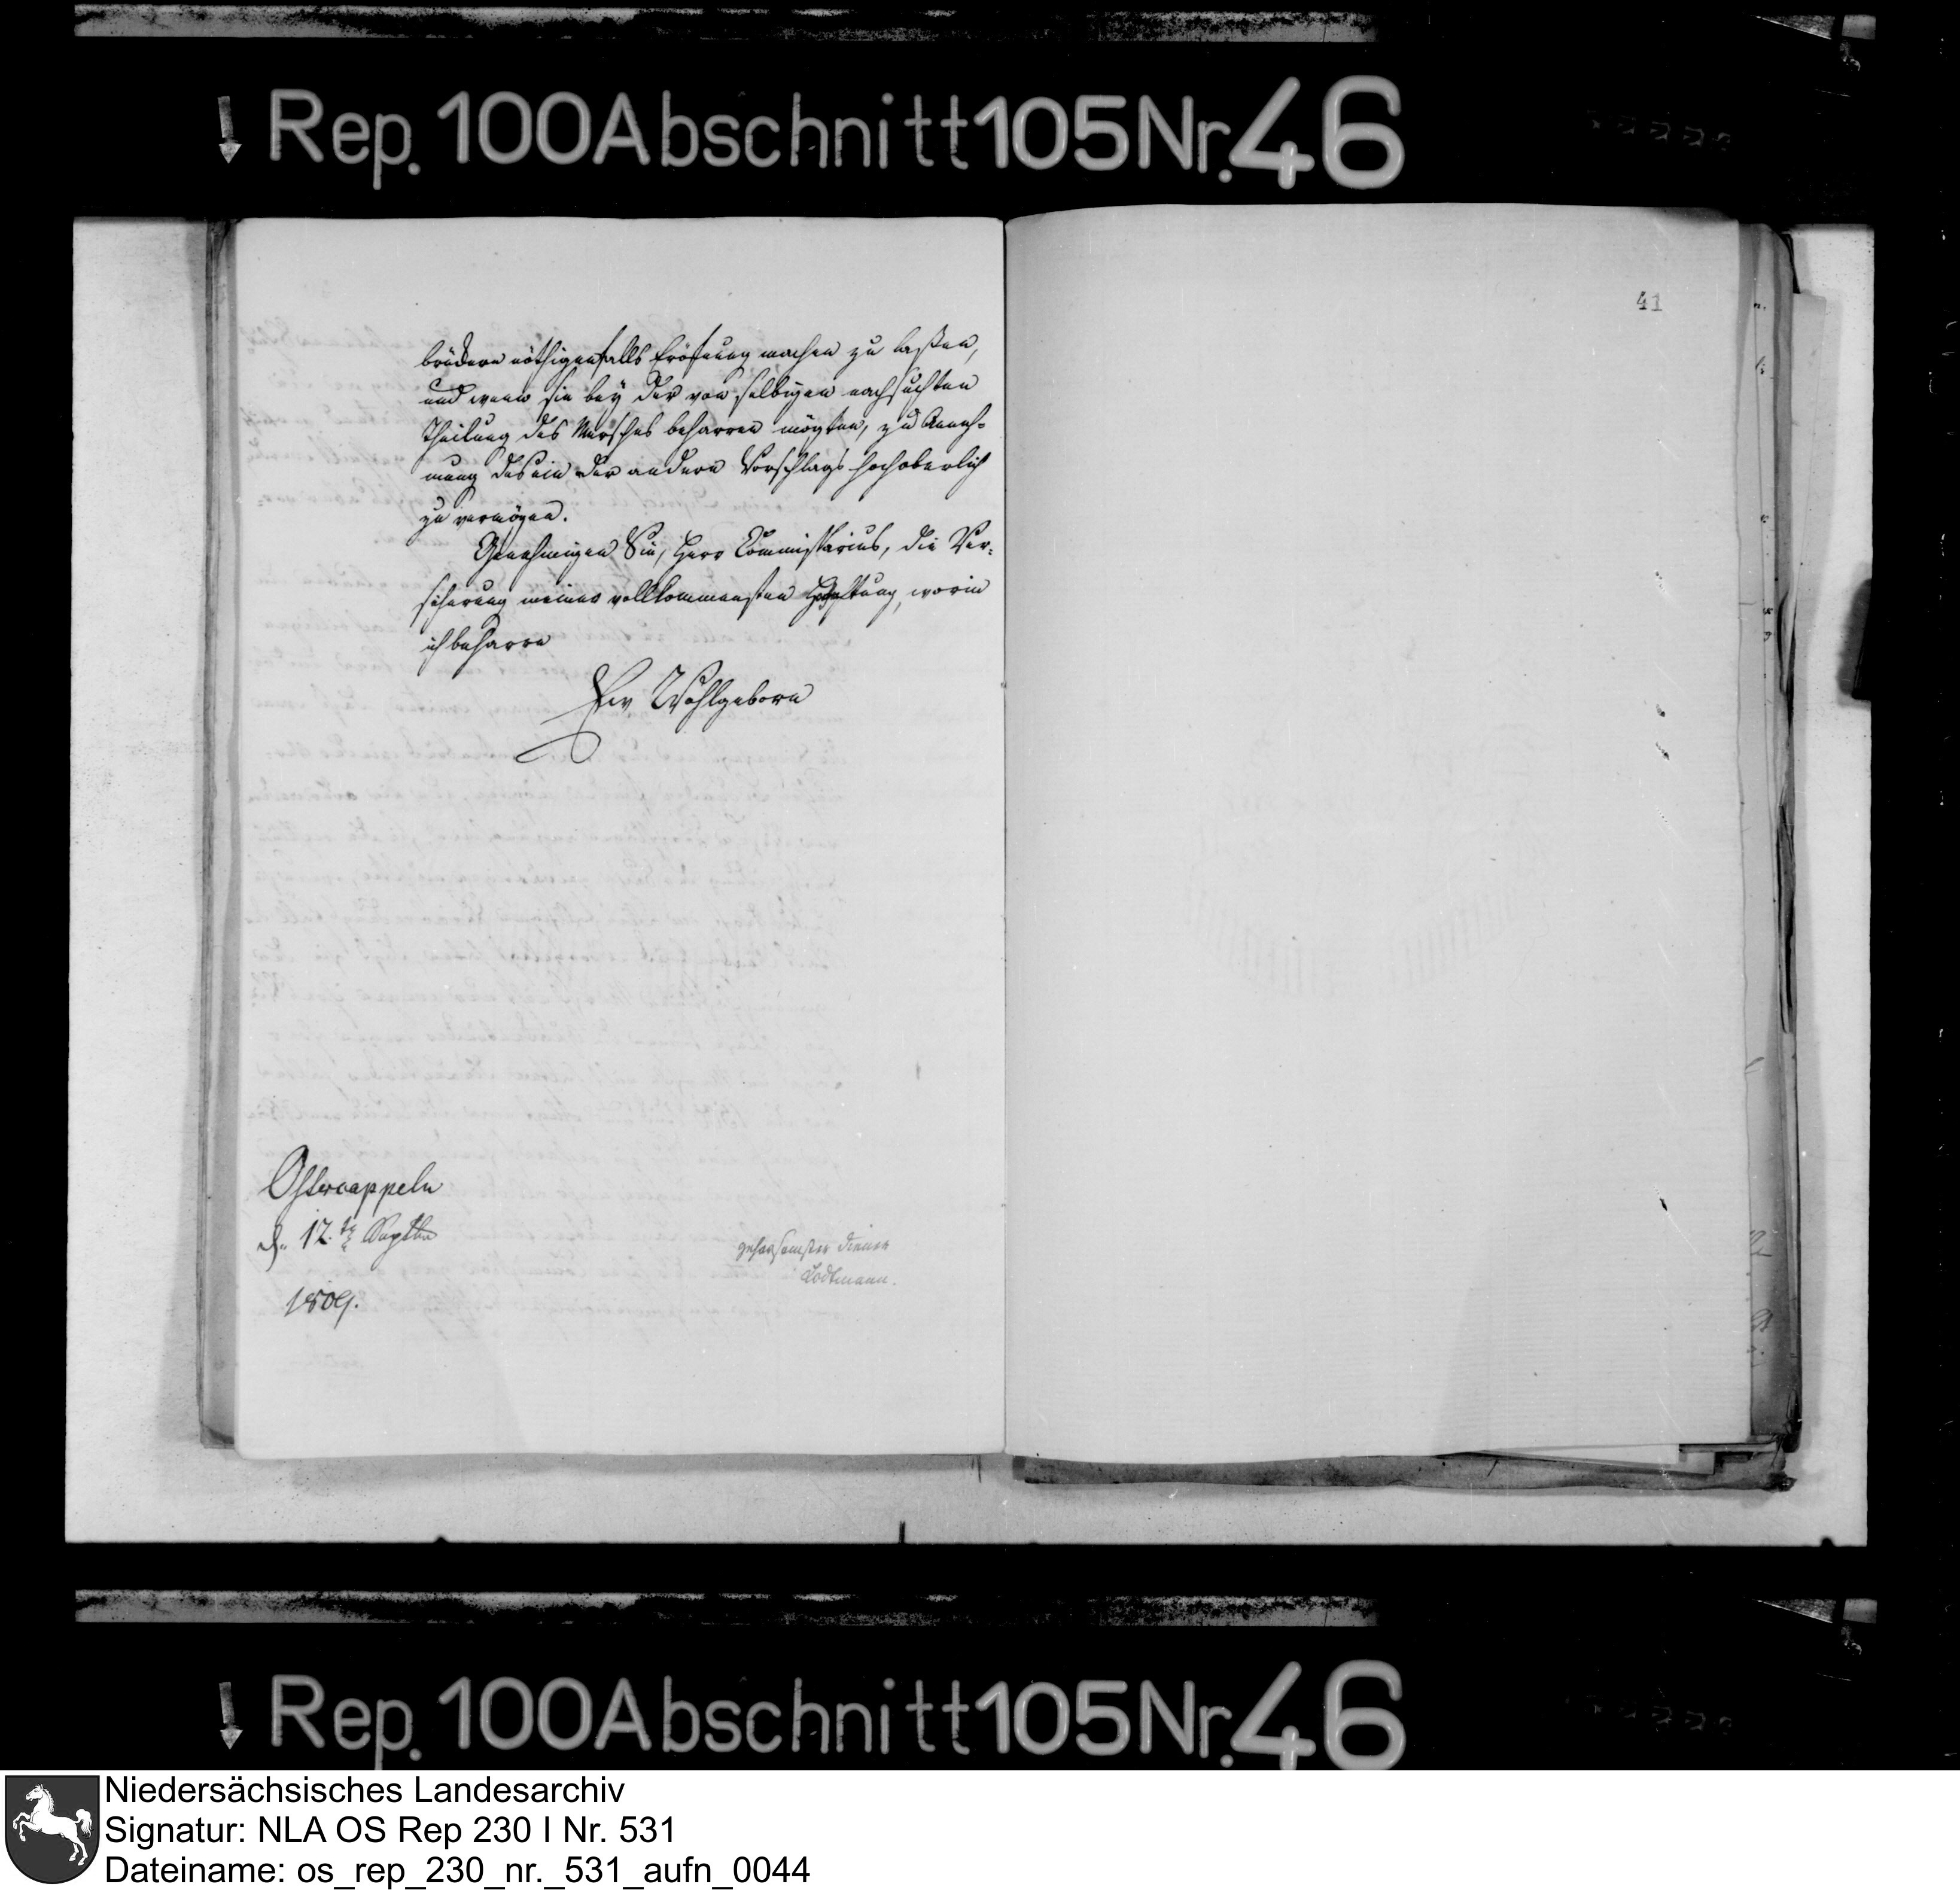 Rep. 100 Abschnitt 105 Nr. 46
41
brüdern nöthigenfalls Eröfnung machen zu laßen,
und wenn sie bey der von selbigen nachsuchten
Theilung des Mersches beharren mögten, zu Anneh-
mung des ein der andern Vorschlags hochoberlich
zu vermögen.
Genehmigen Sie, Herr Commissarius, die Ver-
sicherung meiner vollkommensten Hochachtung, worin
ich beharre
Ew. Wohlgeborn
Ostercappeln
d. 12.te Septbr
1809.
gehorsamster Diener
Lodtmann.
Rep. 100 Abschnitt 105 Nr. 46
Niedersächsisches Landesarchiv
Signatur: NLA OS Rep 230 I Nr. 531
Dateiname: os_rep_230_nr._531_aufn_0044